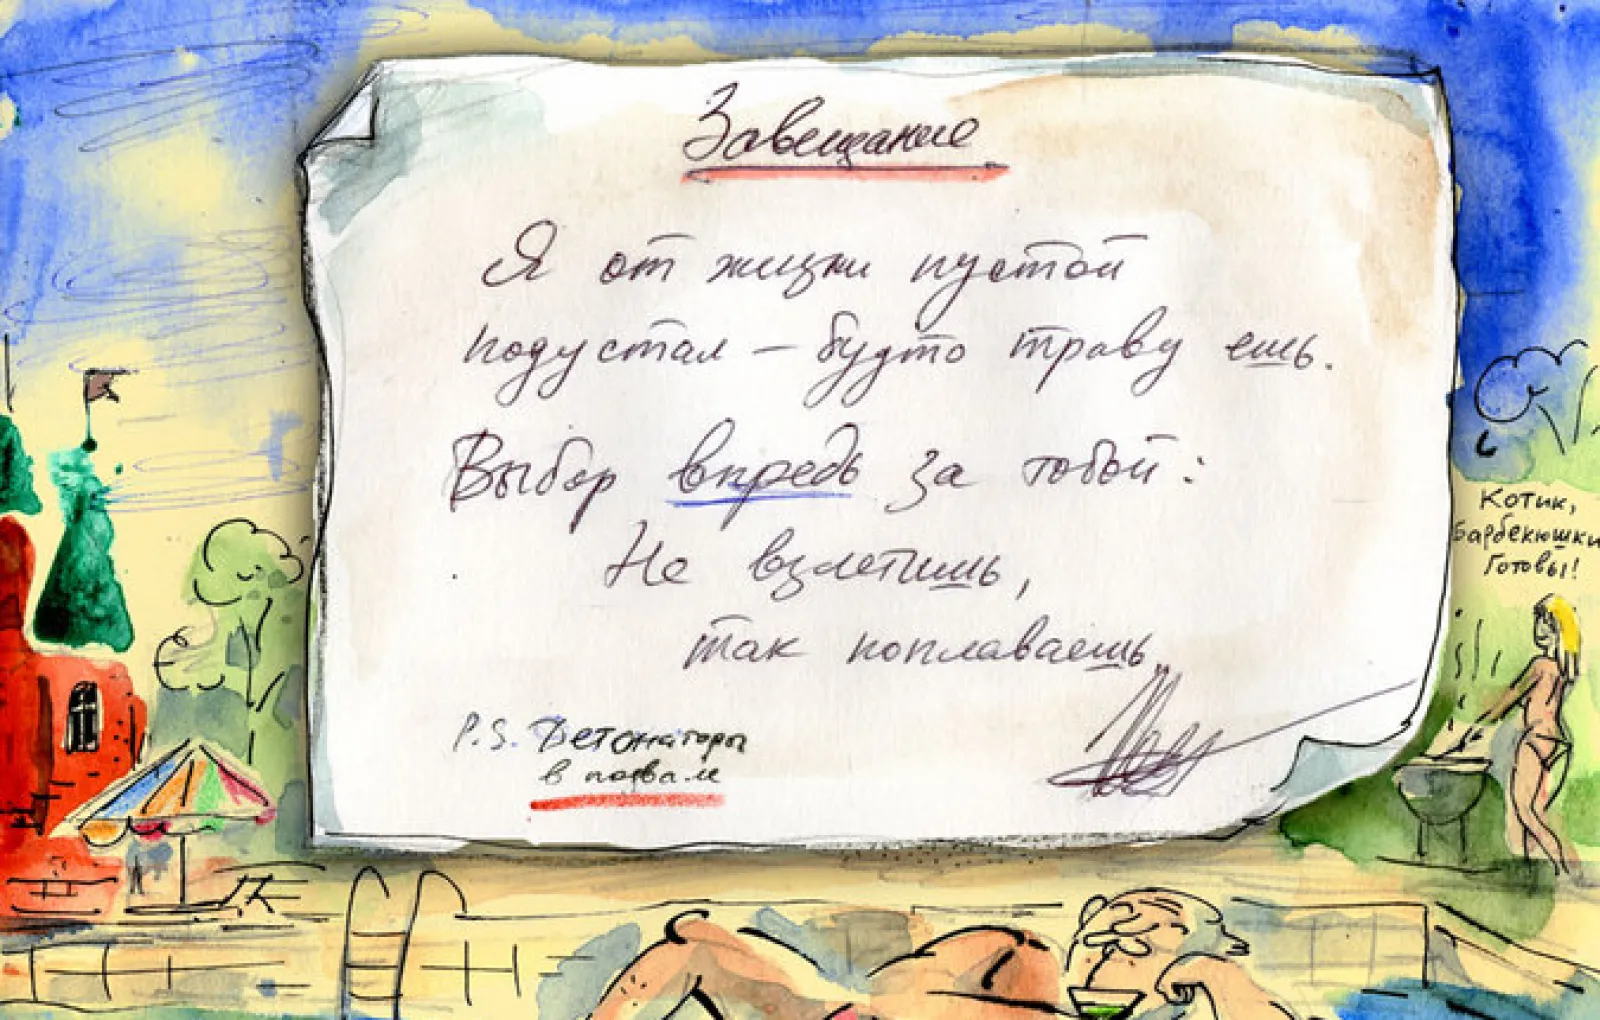 Завещание
Я от жизни пустой
подустал – будто траву ешь.
Выбор впредь за тобой:
Не взлетишь,
так поплаваешь
P.S. Детонаторы
в подвале
Котик,
Барбекюшки
Готовы!